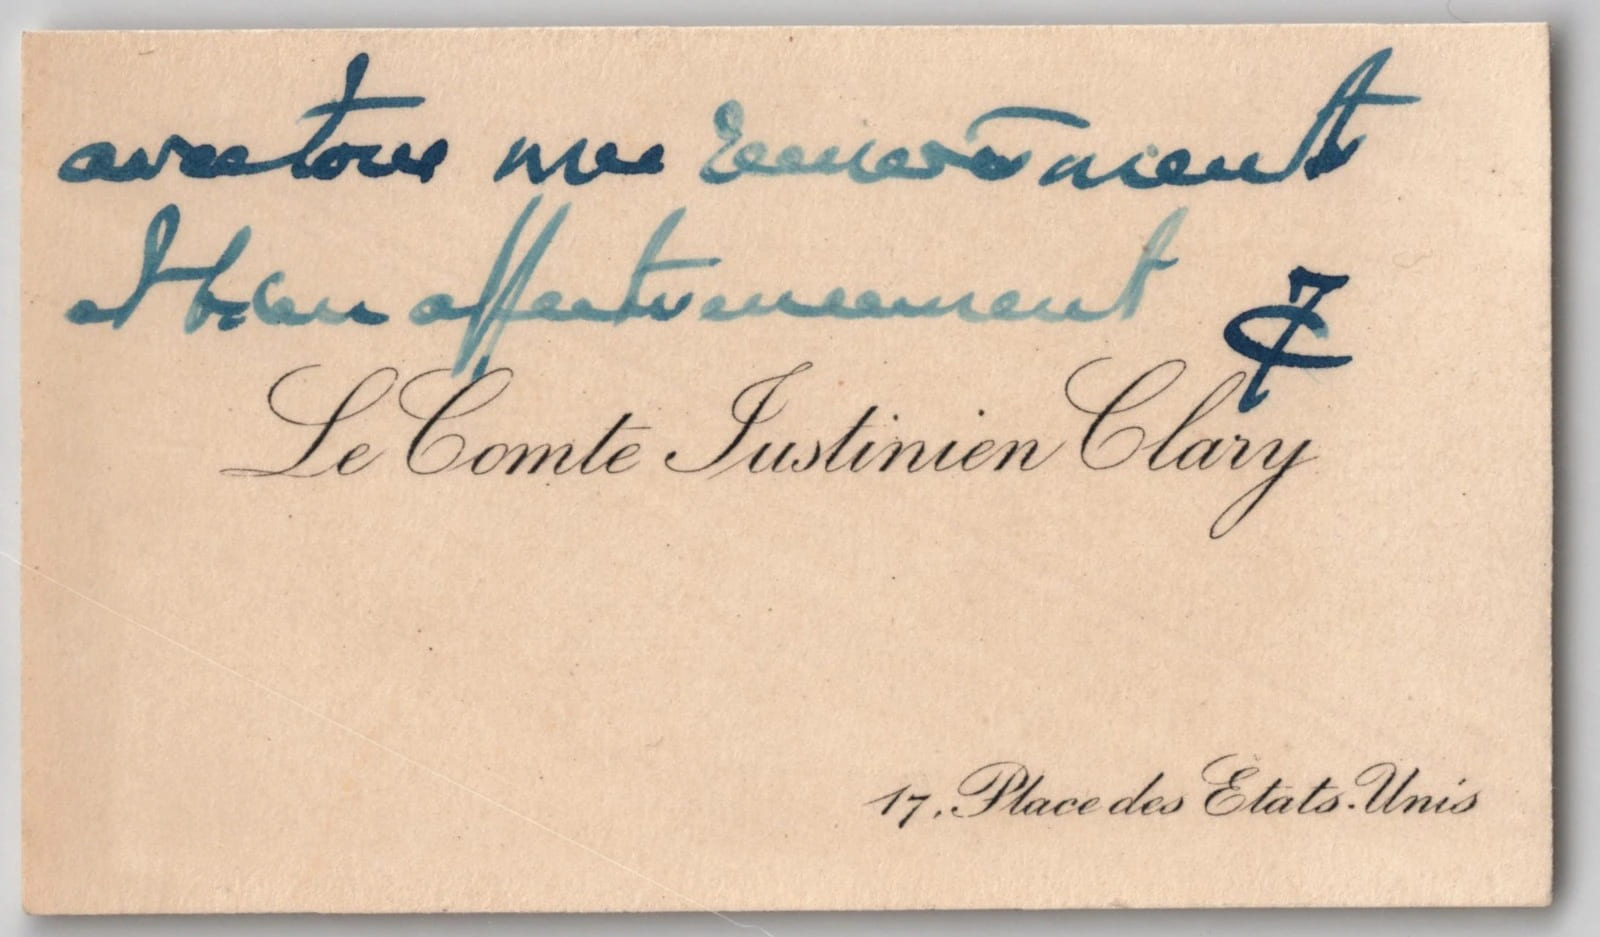 avec tous mes remerciements
et bien affectueusement
Le Comte Justinien Clary
17, Place des Etats-Unis